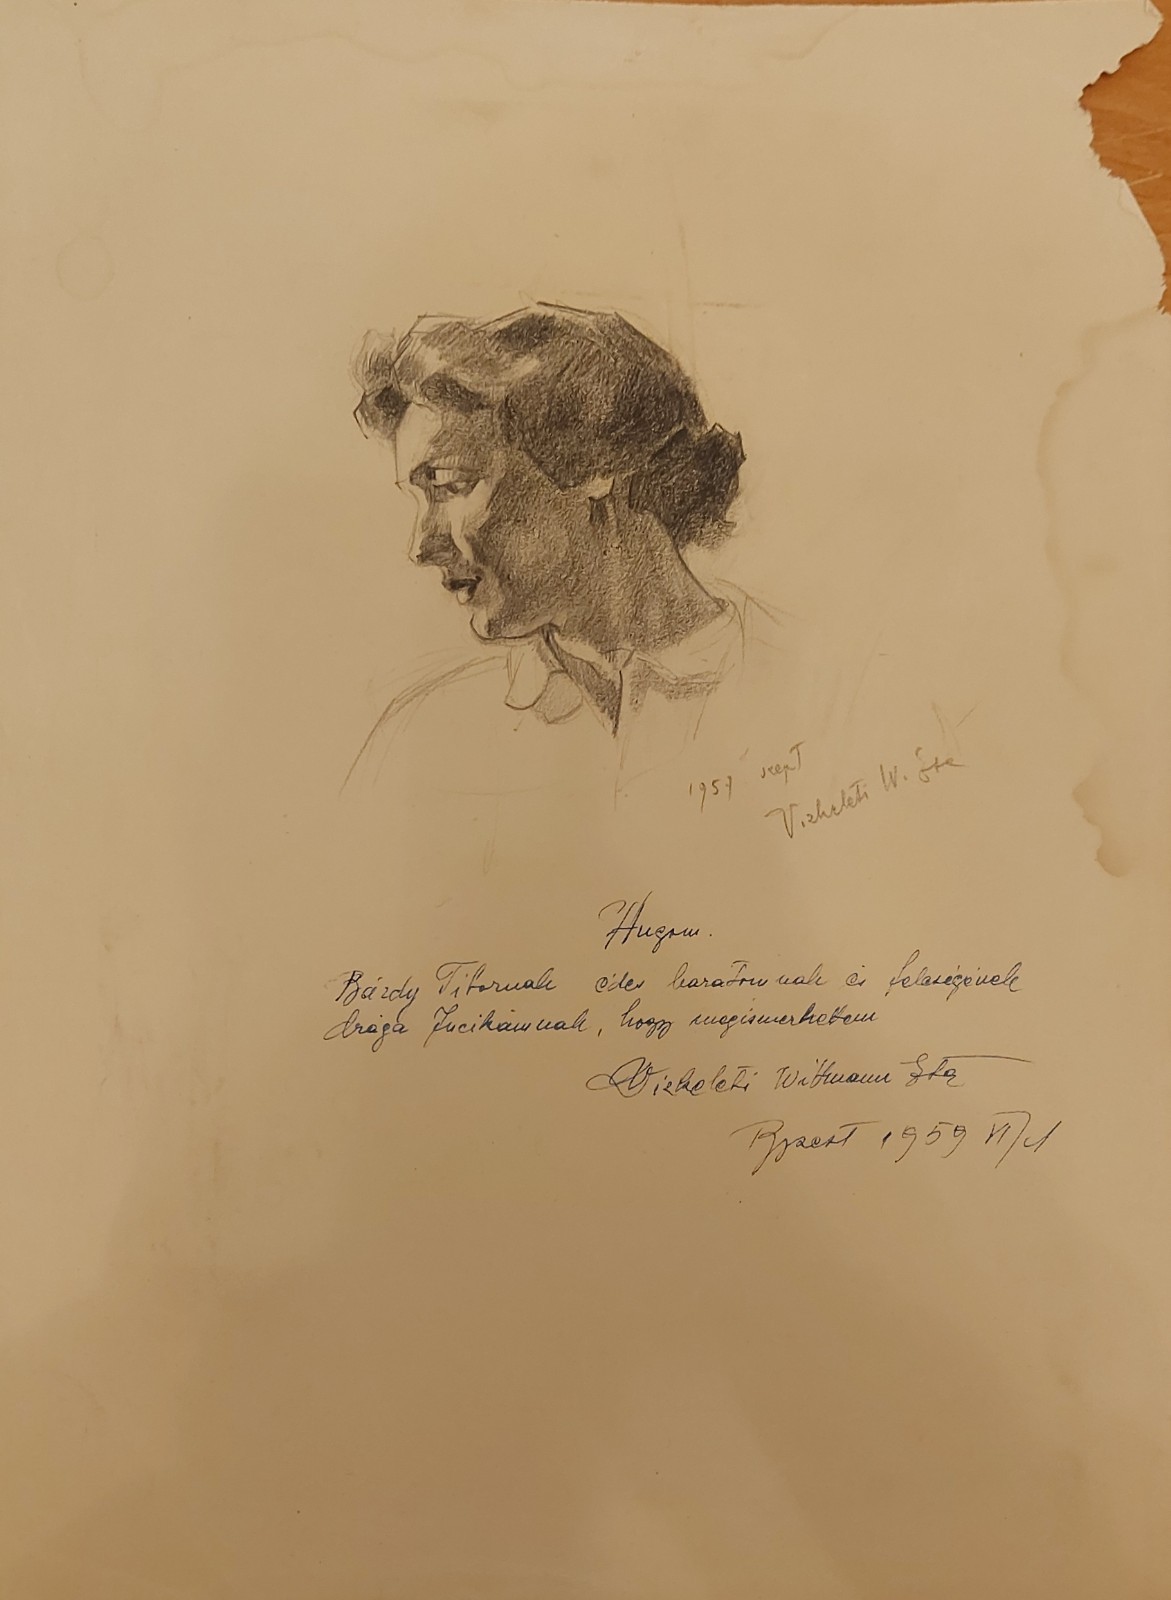 1957 szept
Vizkeleti W. Éta
Hugom.
Bárdy Tibornak édes barátomnak és feleségének
drága Jucikámnak, hogy megismerhettem
Vizkeleti Wittmann Éta
Bpest 1959 VI/1